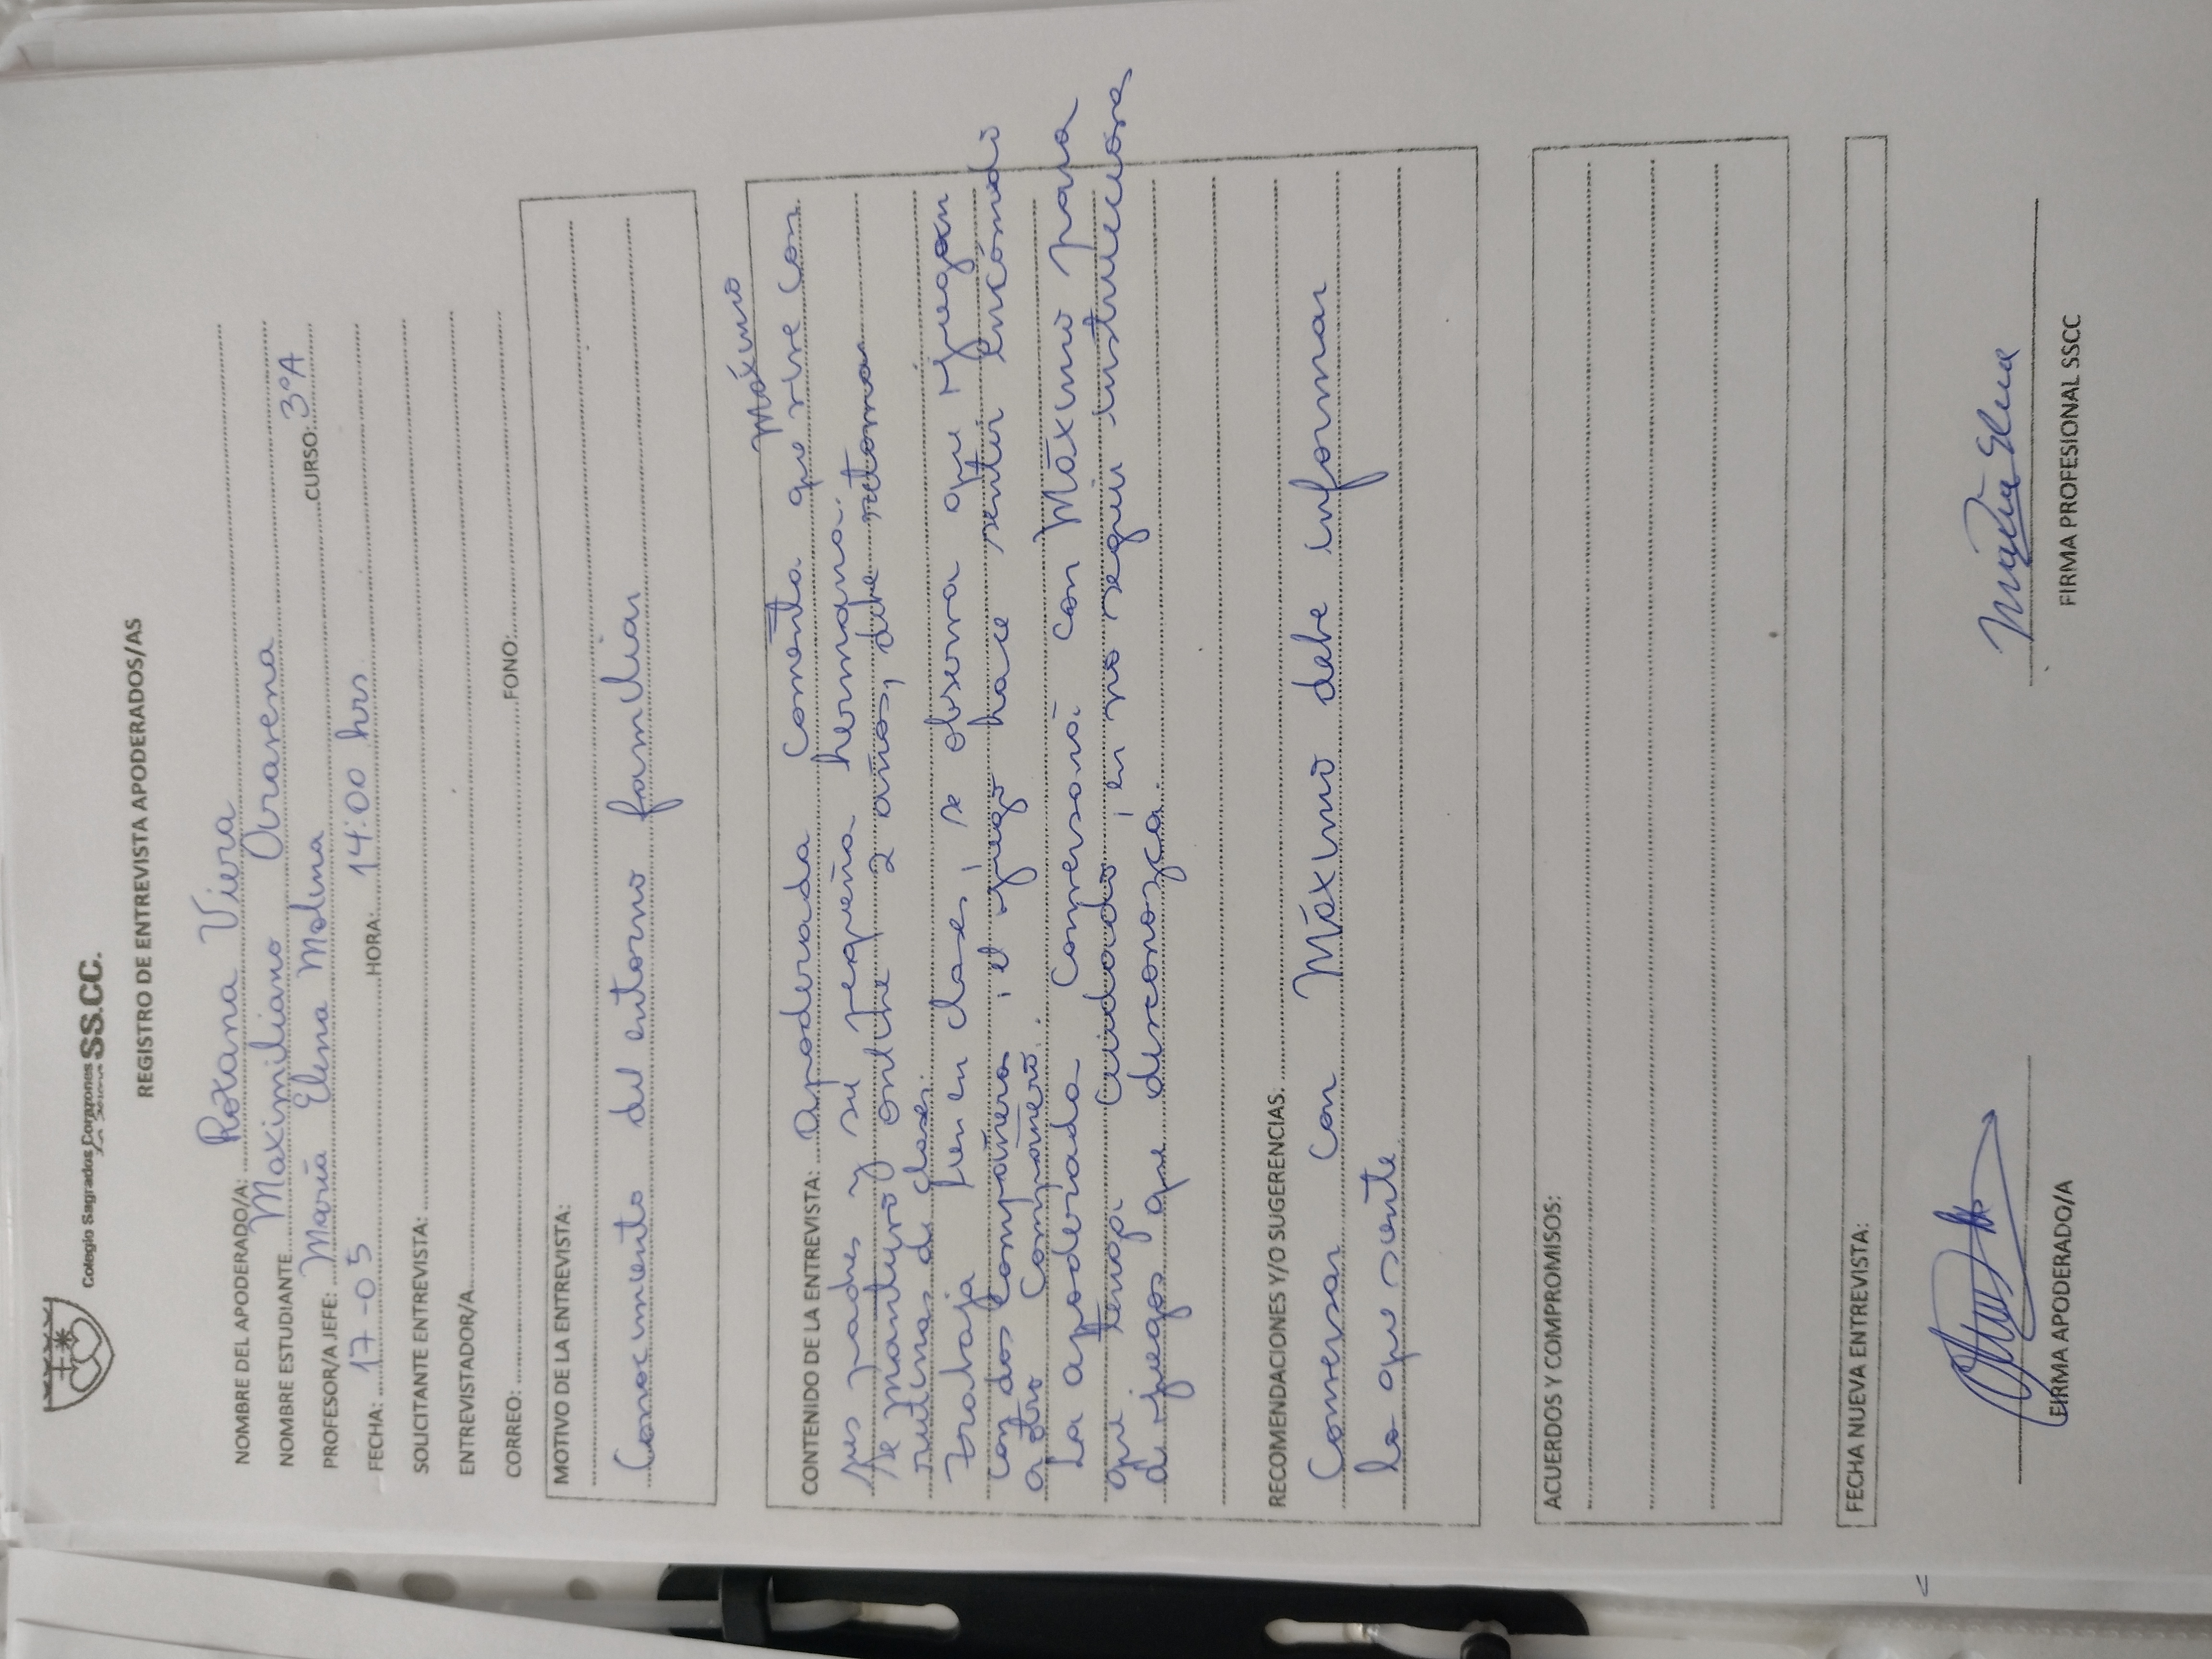 Colegio Sagrados Corazones SS.CC.
REGISTRO DE ENTREVISTA APODERADOS/AS
NOMBRE DEL APODERADO/A: Roxana Viera
NOMBRE ESTUDIANTE Maximiliano Aravena CURSO: 3°A
PROFESOR/A JEFE: María Elena Molina
FECHA: 17-05 HORA: 14:00 hrs
SOLICITANTE ENTREVISTA:
ENTREVISTADOR/A
CORREO: FONO:
MOTIVO DE LA ENTREVISTA:
Conocimiento del entorno familiar
Máximo
CONTENIDO DE LA ENTREVISTA: Apoderada comenta que vive con
sus padres y su pequeña hermana.
Se mantuvo online 2 años, debe retomar
rutinas de clases.
Trabaja bien en clases, se observa que juegan
con dos compañeros, el juego hace sentir incómodo
a otro compañero.
La apoderada conversará con Máximo para
que tenga cuidado, en no seguir instrucciones
de juegos que desconozca.
RECOMENDACIONES Y/O SUGERENCIAS.
Conversar con Máximo debe informar
lo que siente
ACUERDOS Y COMPROMISOS:
FECHA NUEVA ENTREVISTA:
FIRMA APODERADO/A
María Elena
FIRMA PROFESIONAL SSCC